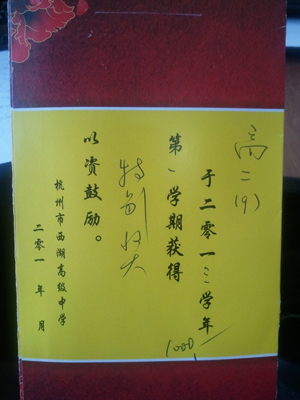 高二(9)
于二零一三学年
第一学期获得
特别好大
以资鼓励。
杭州市西湖高级中学
二零一 年 月
1000